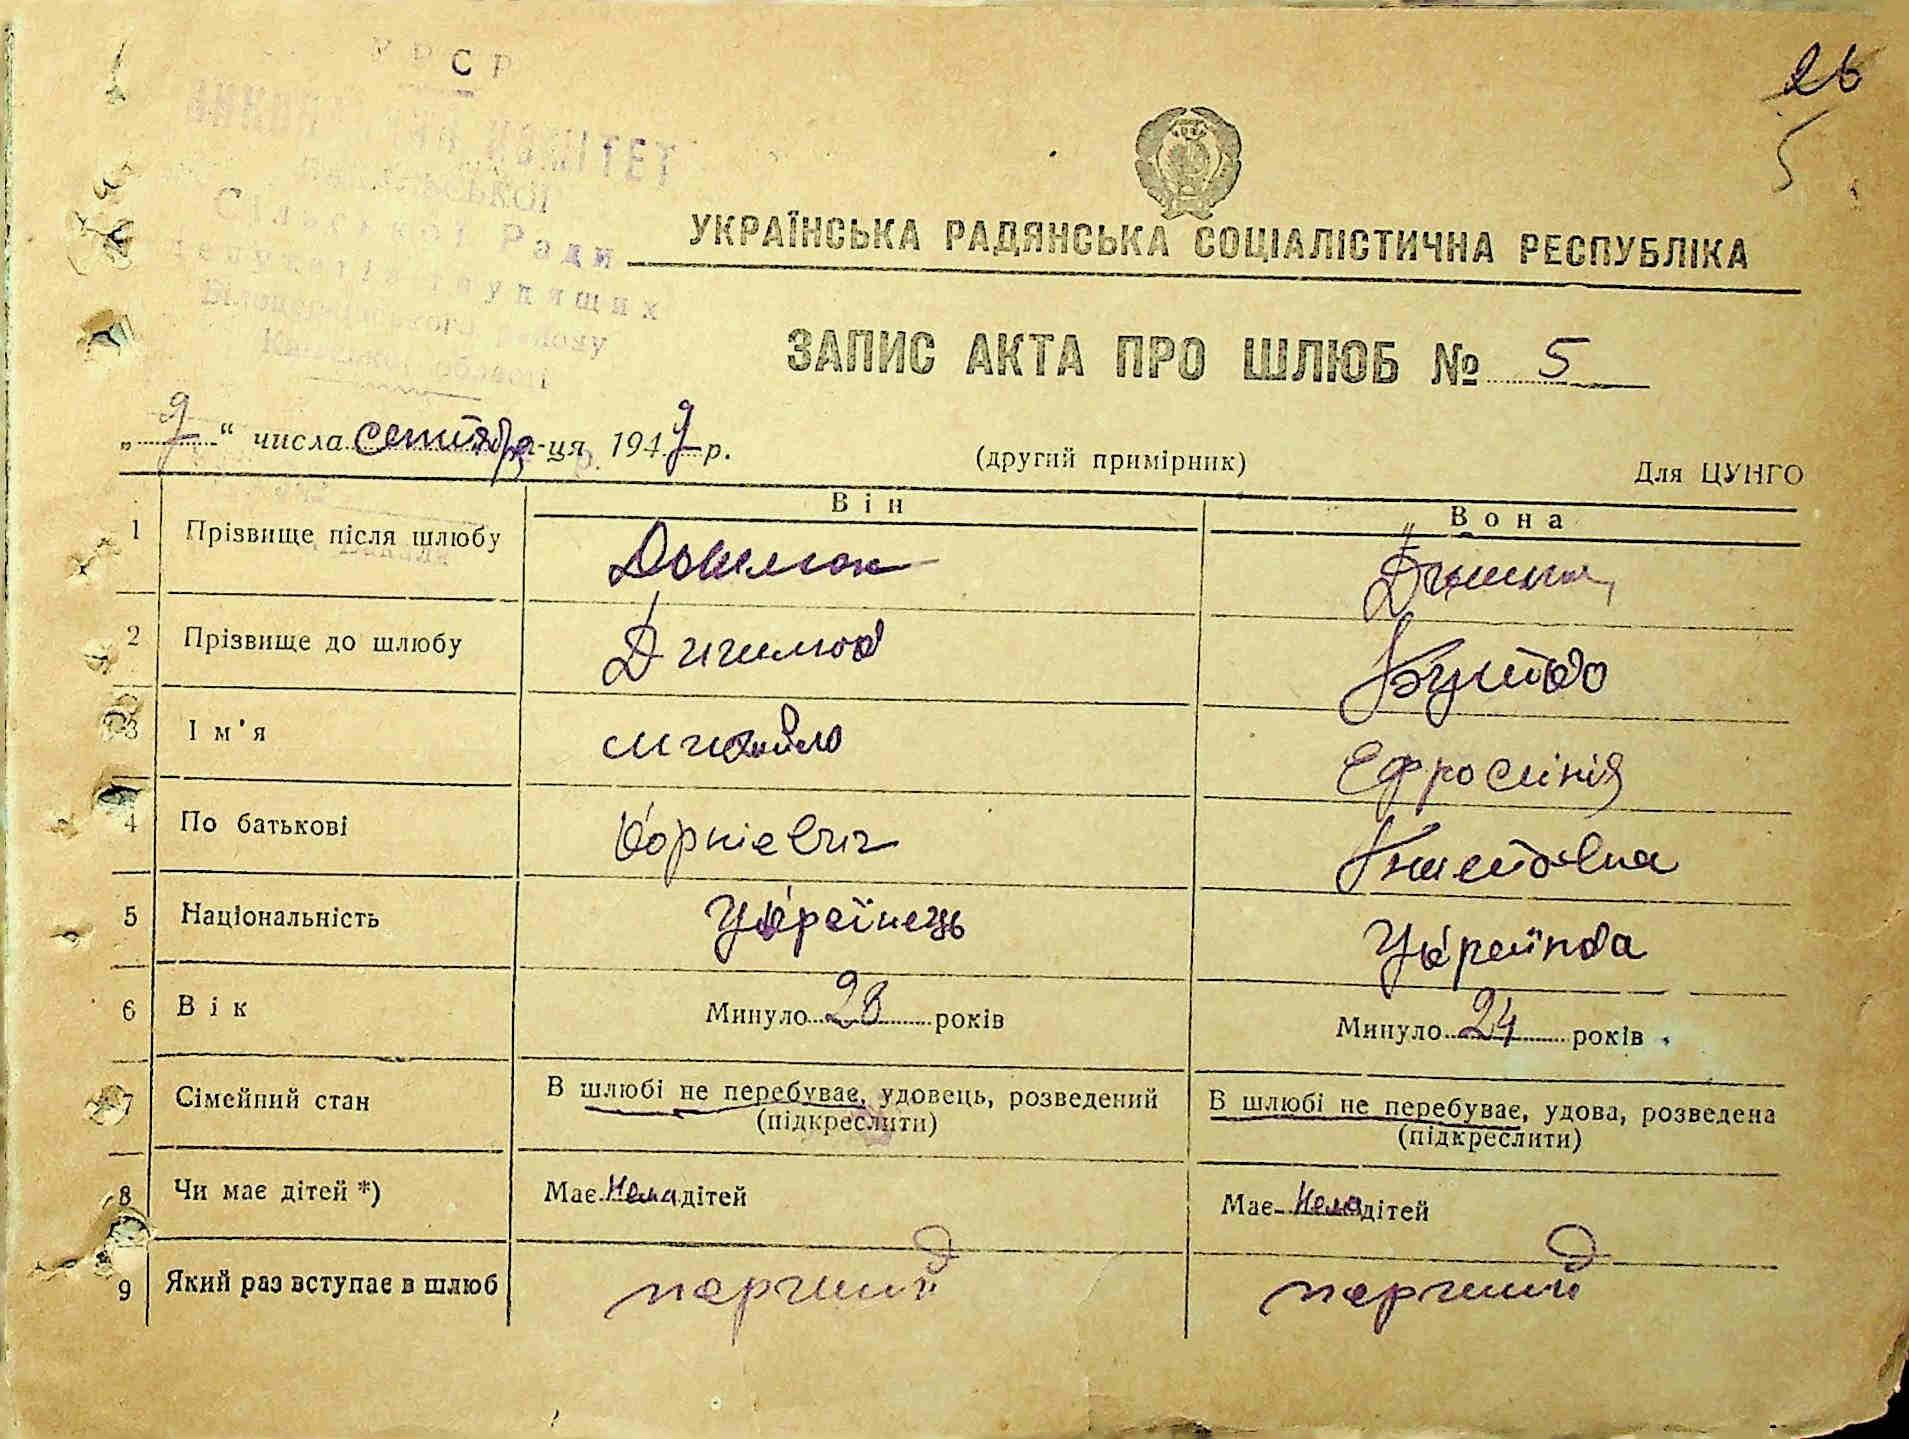 УРСР
ВИКОНАВЧИЙ КОМІТЕТ
Сільської Ради
депутатів трудящих
Білоцерківського району
Київської області
26
5
УКРАЇНСЬКА РАДЯНСЬКА СОЦІАЛІСТИЧНА РЕСПУБЛІКА
ЗАПИС АКТА ПРО ШЛЮБ № 5
„9“ числа сентября-ця 1949 р.
(другий примірник)
Для ЦУНГО
Він
Вона
1 Прізвище після шлюбу
2 Прізвище до шлюбу
3 Ім'я Михайло Єфросинія
4 По батькові Корнієвич
5 Національність Українець Українка
6 Вік Минуло 28 років Минуло 24 років
7 Сімейний стан В шлюбі не перебуває, удовець, розведений (підкреслити) В шлюбі не перебуває, удова, розведена (підкреслити)
8 Чи має дітей *) Має нема дітей Має нема дітей
9 Який раз вступає в шлюб перший перший